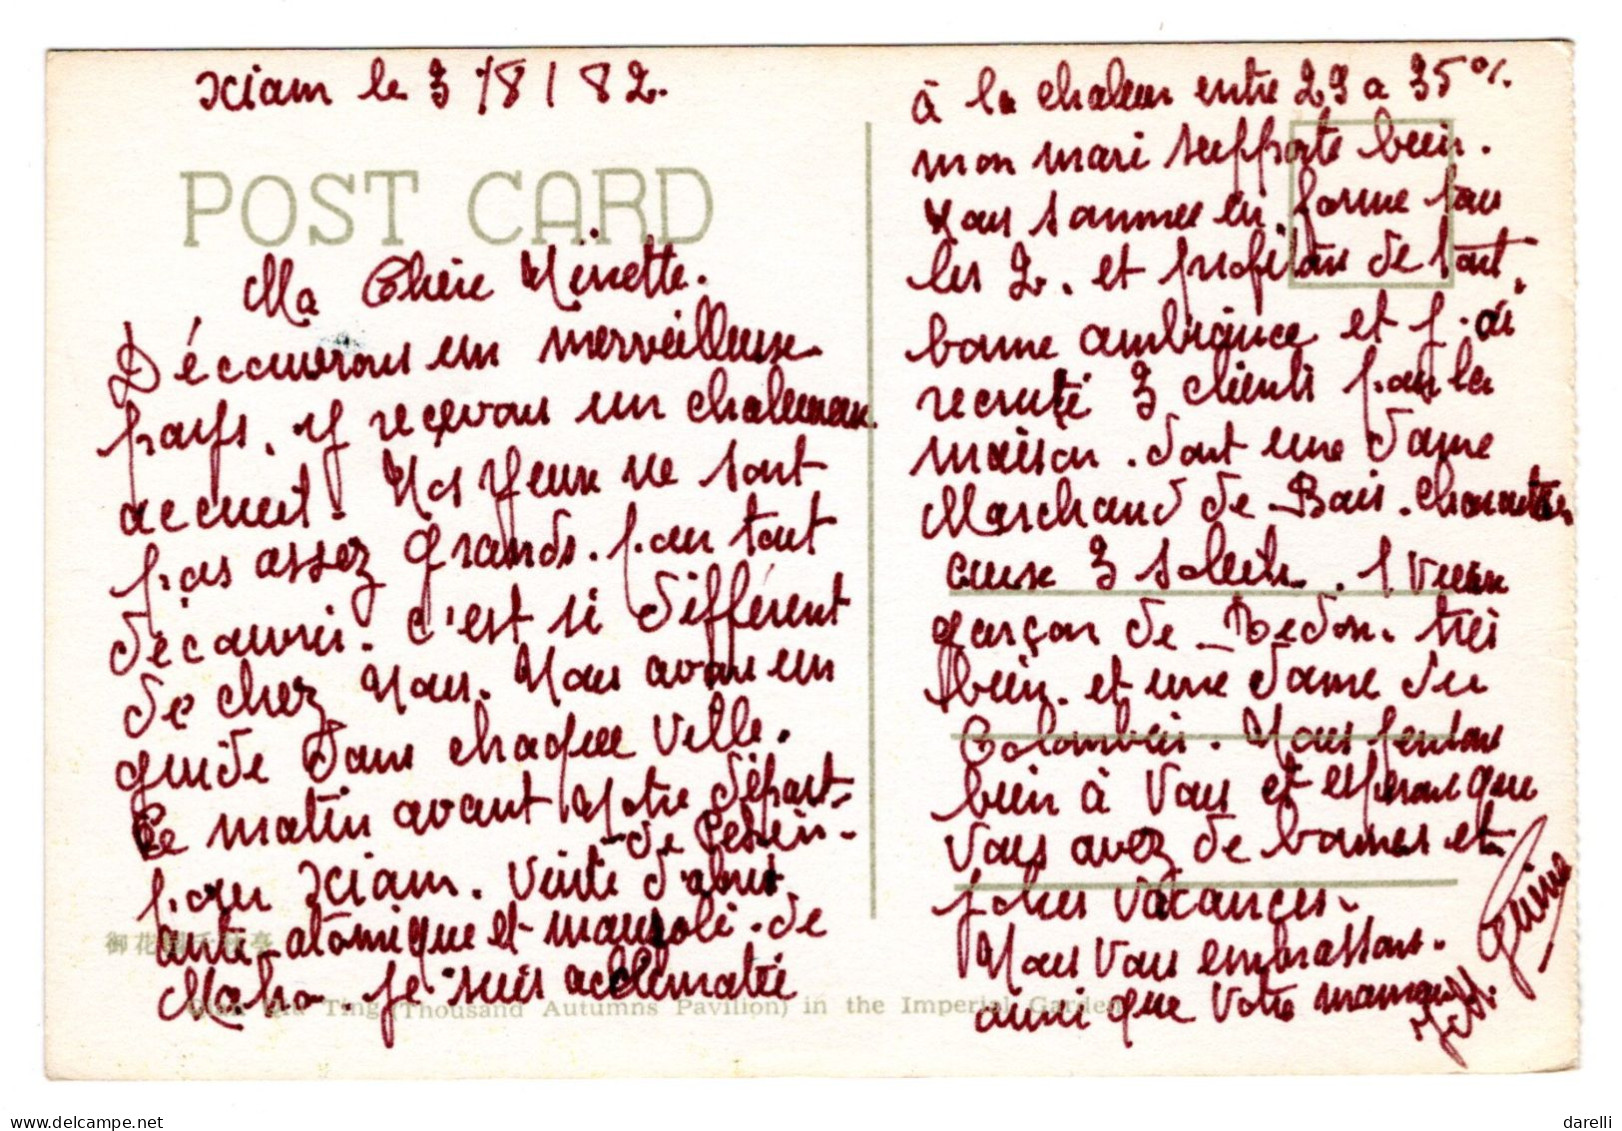 Xiam le 3/8/82.
POST CARD
Ma Chère Minette.
Découvrons un merveilleux
pays, y reçevons un chaleureux
accueil. Nos yeux ne sont
pas assez grands. pour tout
découvrir. c'est si différent
de chez Nous. Nous avons un
guide dans chaque ville.
Ce matin avant Notre départ
de Pekin
pour Xiam. Visite d'abris
anti-atomique et mausolé. de
Maho. je suis acclimatée
御花園千秋亭
Qian Qiu Ting (Thousand Autumns Pavilion) in the Imperial Garden
à la chaleur entre 29 a 35%.
mon mari supporte bien.
Nous sommes en forme tous
les 2. et profitons de tout.
bonne ambiance et j'ai
recruté 3 clients pour la
maison. dont une dame
Marchand de Bois. Charentes
aux 3 soleils. 1 vieux
garçon de Redon. très
bien. et une dame du
Colombier. Nous pensons
bien à Vous et espérons que
Vous avez de bonnes et
jolies vacances.
Nous Vous embrassons.
ainsi que Votre maman